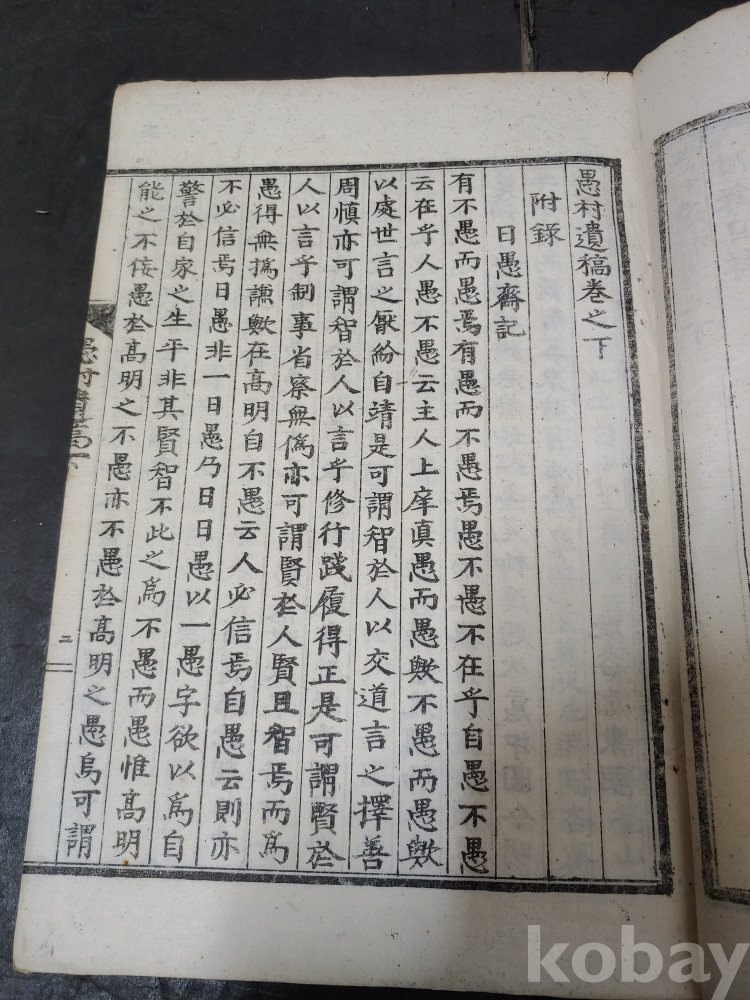 愚村遺稿卷之下
附錄
日愚齋記
有不愚而愚焉有愚而不愚焉愚不愚不在乎自愚不愚
云在乎人愚不愚云主人上庠真愚而愚歟不愚而愚歟
以處世言之厭紛自靖是可謂智於人以交道言之擇善
周慎亦可謂智於人以言乎修行踐履得正是可謂賢於
人以言乎制事省察無僞亦可謂賢於人賢且智焉而爲
愚得無撝謙歟在高明自不愚云人必信焉自愚云則亦
不必信焉日愚非一日愚乃日日愚以一愚字欲以爲自
警於自家之生平非其賢智不此之爲不愚而愚惟高明
能之不佞愚於高明之不愚亦不愚於高明之愚烏可謂
愚村遺稿下
二
kobay